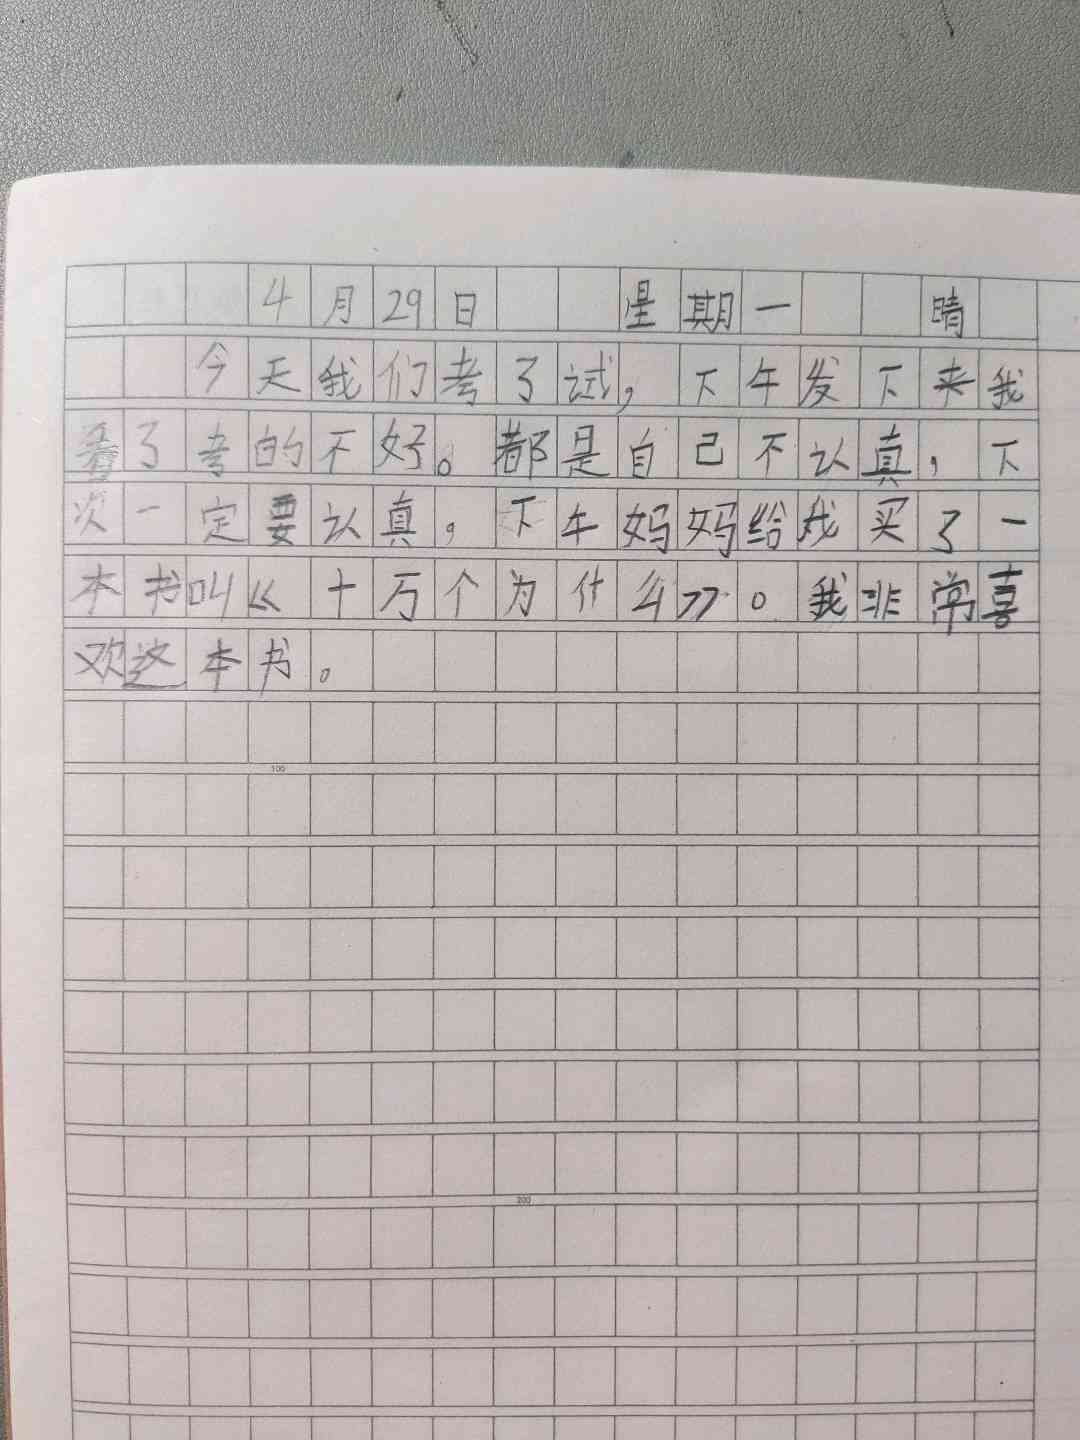 4月29日 星期一 晴
今天我们考了试，下午发下来我
看了考的不好。都是自己不认真，下
次一定要认真，下午妈妈给我买了一
本书叫《十万个为什么》。我非常喜
欢这本书。
100
200